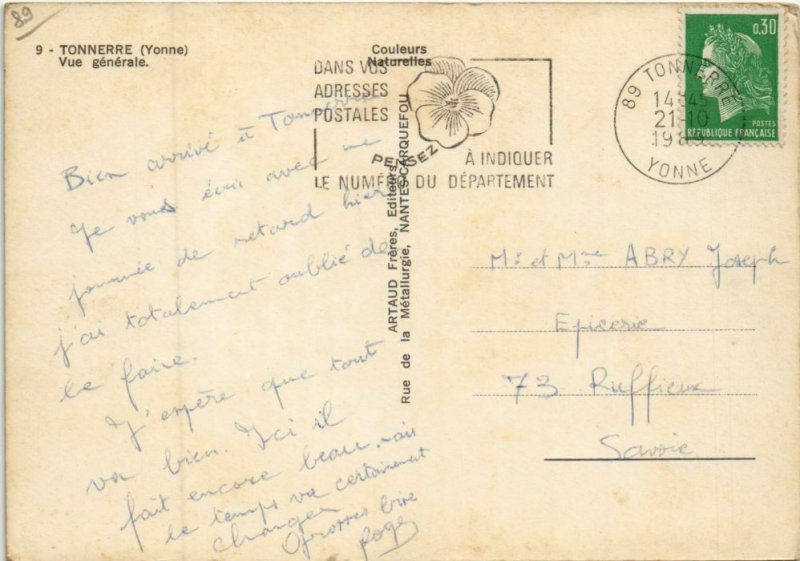 89
9 - TONNERRE (Yonne)
Vue générale.
Couleurs
Naturelles
DANS VOS
ADRESSES
POSTALES
PENSEZ
À INDIQUER
LE NUMÉRO DU DÉPARTEMENT
89 TONNERRE
14-45
21-10
YONNE
0,30
POSTES
RÉPUBLIQUE FRANÇAISE
ARTAUD Frères, Editeurs
Rue de la Métallurgie, NANTES-CARQUEFOU
Bien arrivé à Tonnerre
Je vous écris avec une
journée de retard hier
j'ai totalement oublié de
le faire.
J'espère que tout
va bien. Ici il
fait encore beau mais
le temps va certainement
changer
M. et Mme ABRY Joseph
Epicerie
73 Ruffieux
Savoie